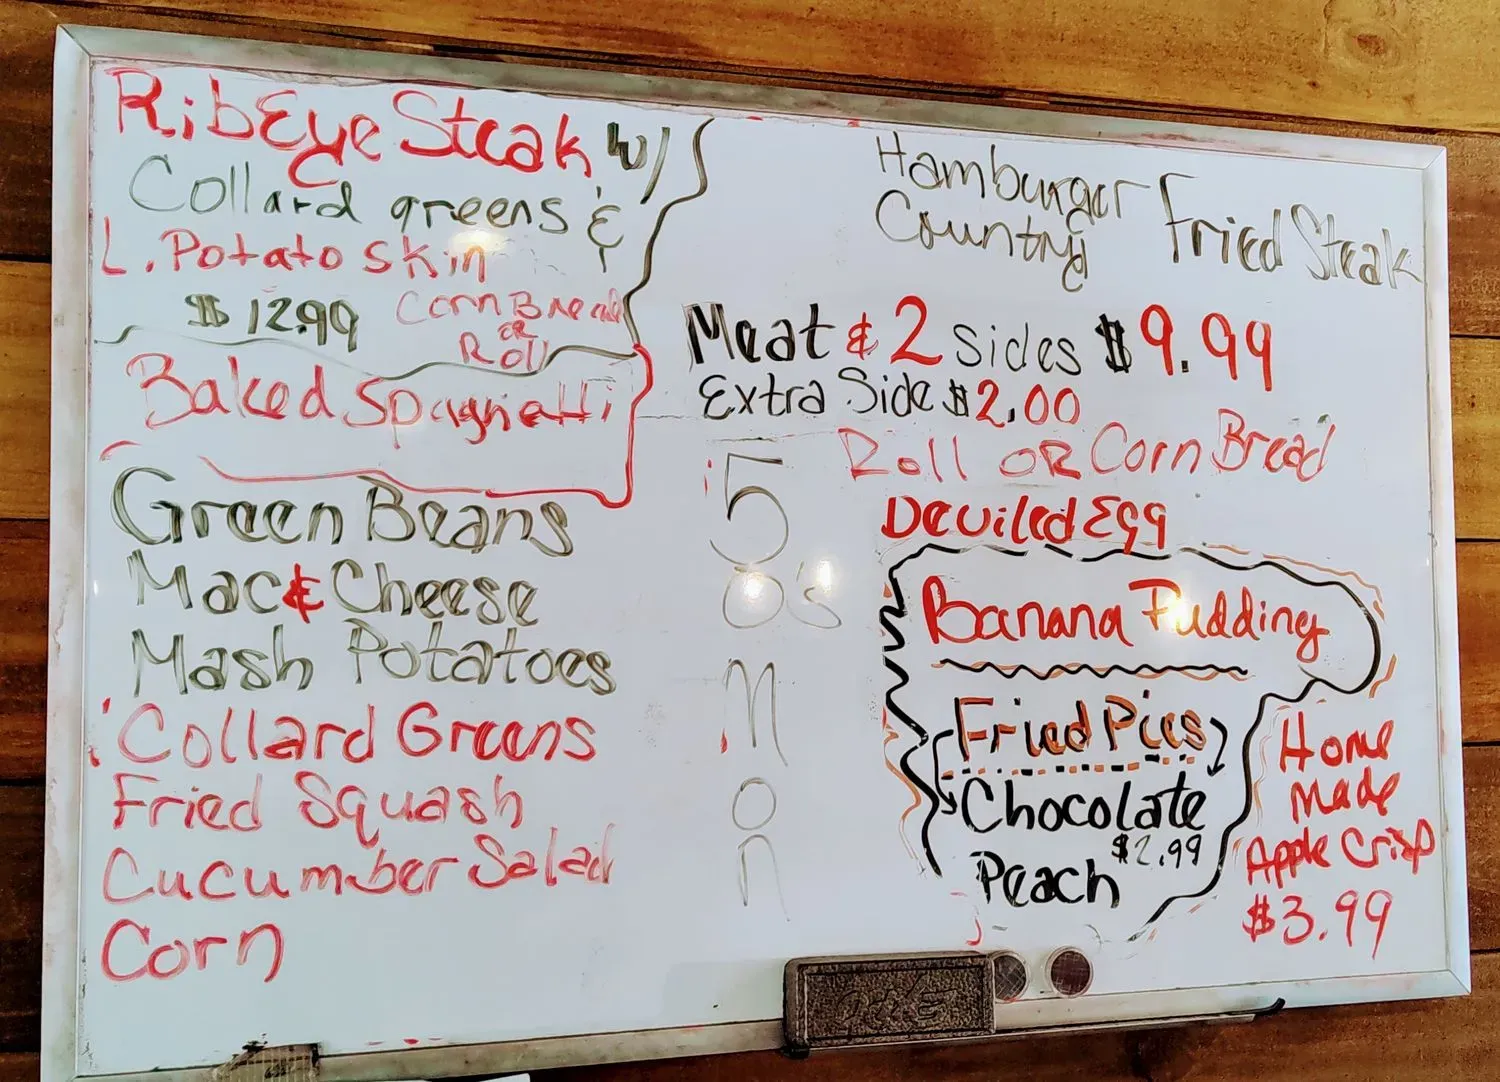 RibEye Steak w/
Collard greens &
L. Potato skin
$12.99 Corn Bread
OR
Roll
Baked Spaghetti
Green Beans
Mac & Cheese
Mash Potatoes
Collard Greens
Fried Squash
Cucumber Salad
Corn
50's
M
o
n
Hamburger
Country Fried Steak
Meat & 2 Sides $9.99
Extra Side $2.00
Roll OR Corn Bread
Deviled Egg
Banana Pudding
Fried Pies
Chocolate
$2.99
Peach
Home
Made
Apple Crisp
$3.99